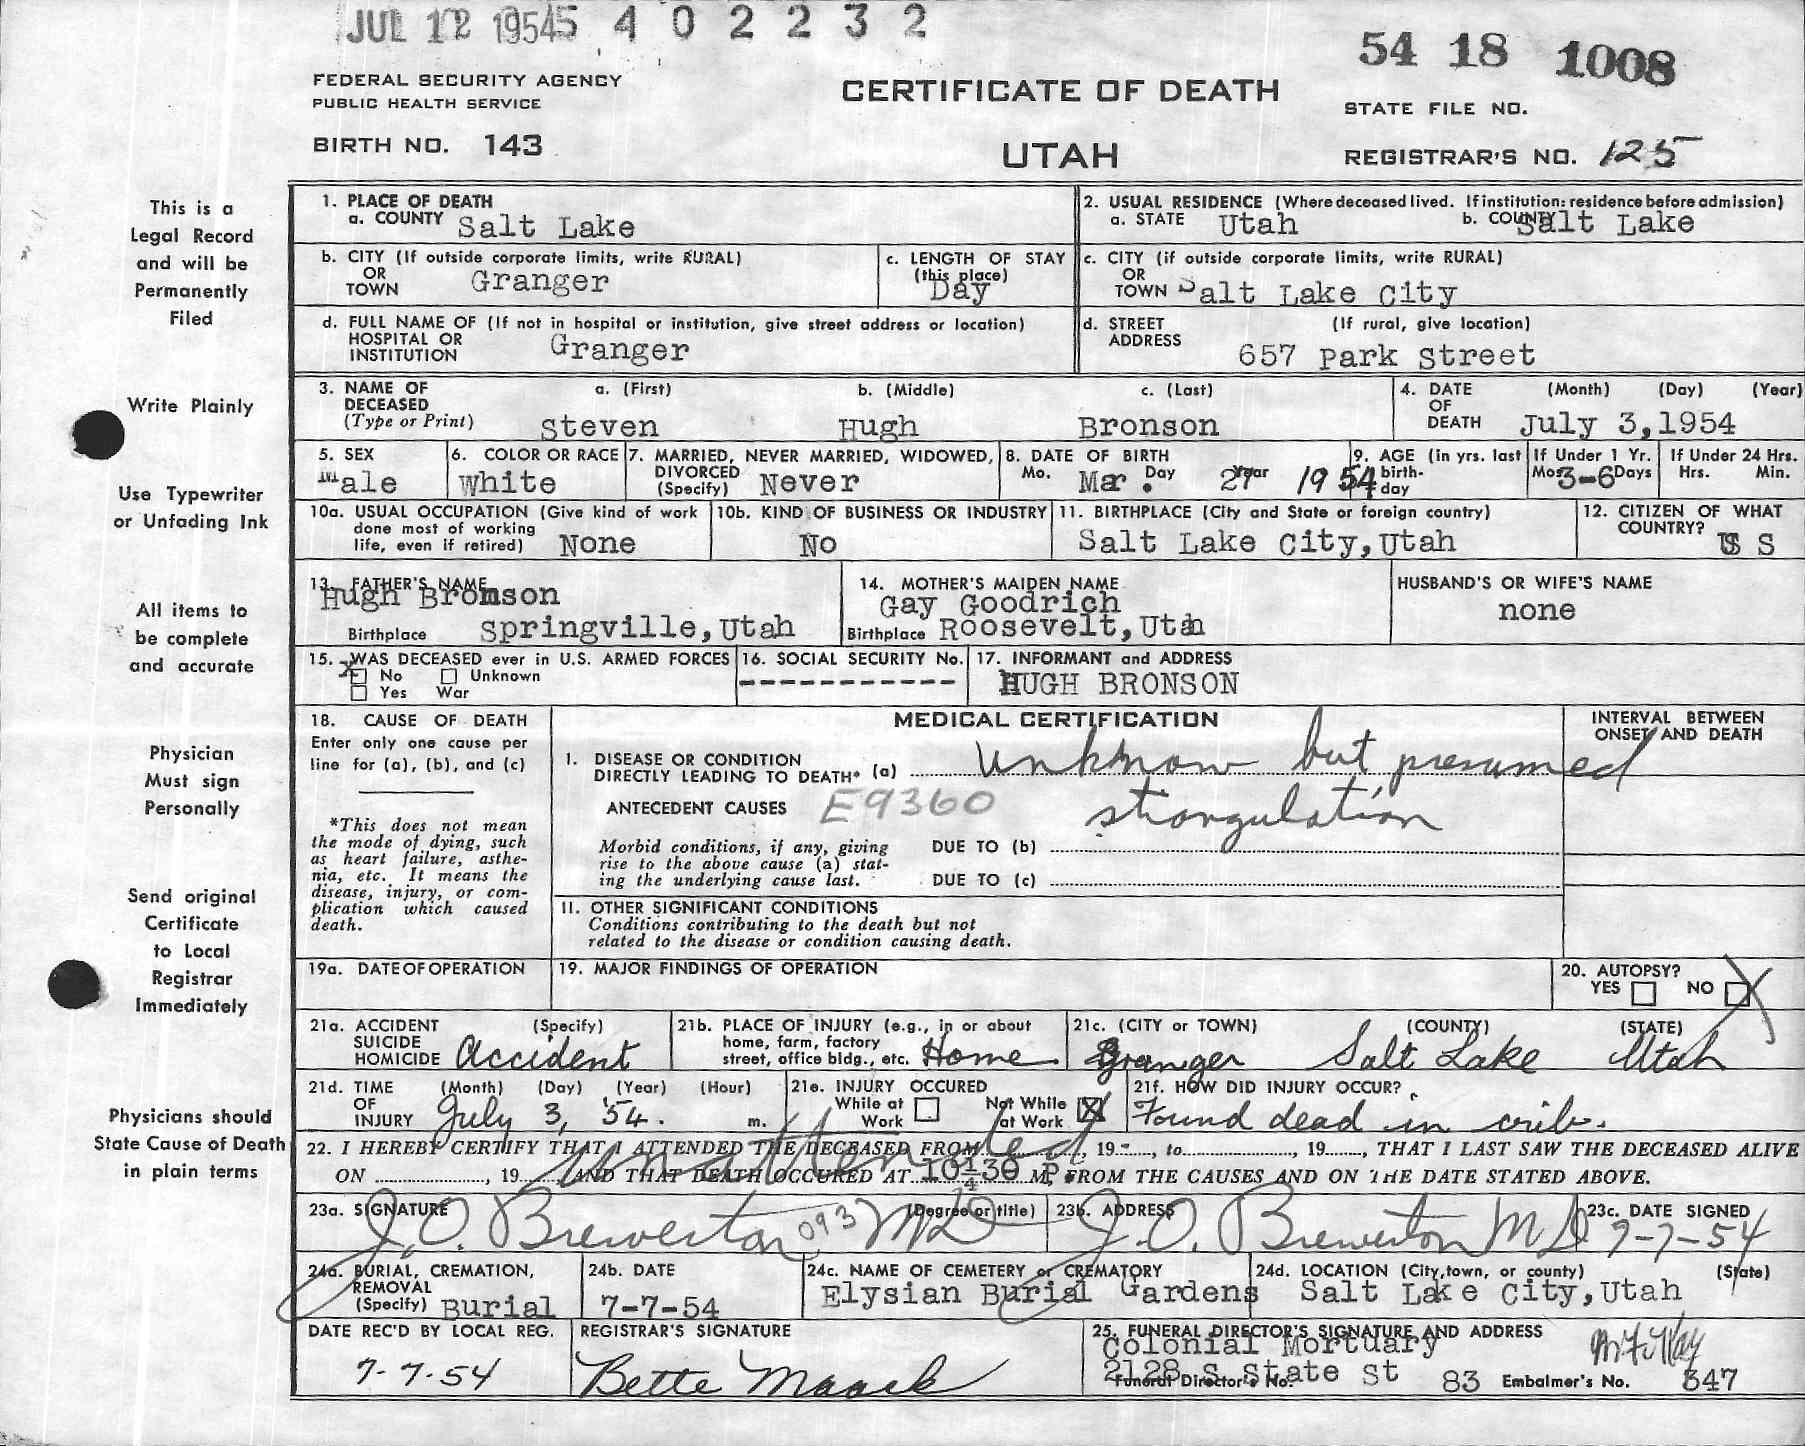 JUL 12 1954 5 4 0 2 2 3 2
54 18 1008
FEDERAL SECURITY AGENCY
PUBLIC HEALTH SERVICE
CERTIFICATE OF DEATH
STATE FILE NO.
BIRTH NO. 143
UTAH
REGISTRAR'S NO. 125
This is a
Legal Record
and will be
Permanently
Filed
Write Plainly
Use Typewriter
or Unfading Ink
All items to
be complete
and accurate
Physician
Must sign
Personally
Send original
Certificate
to Local
Registrar
Immediately
Physicians should
State Cause of Death
in plain terms
1. PLACE OF DEATH
a. COUNTY Salt Lake
2. USUAL RESIDENCE (Where deceased lived. If institution: residence before admission)
a. STATE Utah b. COUNTY Salt Lake
b. CITY (If outside corporate limits, write RURAL)
OR
TOWN Granger
c. LENGTH OF STAY
(this place)
Day
c. CITY (if outside corporate limits, write RURAL)
OR
TOWN Salt Lake City
d. FULL NAME OF (If not in hospital or institution, give street address or location)
HOSPITAL OR
INSTITUTION Granger
d. STREET (If rural, give location)
ADDRESS
657 Park Street
3. NAME OF a. (First) b. (Middle) c. (Last)
DECEASED
(Type or Print) Steven Hugh Bronson
4. DATE (Month) (Day) (Year)
OF
DEATH July 3, 1954
5. SEX
Male
6. COLOR OR RACE
White
7. MARRIED, NEVER MARRIED, WIDOWED,
DIVORCED
(Specify) Never
8. DATE OF BIRTH
Mo. Mar. Day 27 Year 1954
9. AGE (in yrs. last
birth-
day
If Under 1 Yr.
Mos 3-6 Days
If Under 24 Hrs.
Hrs. Min.
10a. USUAL OCCUPATION (Give kind of work
done most of working
life, even if retired) None
10b. KIND OF BUSINESS OR INDUSTRY
No
11. BIRTHPLACE (City and State or foreign country)
Salt Lake City, Utah
12. CITIZEN OF WHAT
COUNTRY? U S
13. FATHER'S NAME
Hugh Bronson
Birthplace Springville, Utah
14. MOTHER'S MAIDEN NAME
Gay Goodrich
Birthplace Roosevelt, Utah
HUSBAND'S OR WIFE'S NAME
none
15. WAS DECEASED ever in U.S. ARMED FORCES
X No Unknown
Yes War
16. SOCIAL SECURITY No.
-----------
17. INFORMANT and ADDRESS
HUGH BRONSON
18. CAUSE OF DEATH
Enter only one cause per
line for (a), (b), and (c)
*This does not mean
the mode of dying, such
as heart failure, asthe-
nia, etc. It means the
disease, injury, or com-
plication which caused
death.
MEDICAL CERTIFICATION
INTERVAL BETWEEN
ONSET AND DEATH
1. DISEASE OR CONDITION
DIRECTLY LEADING TO DEATH* (a) Unknown but presumed
ANTECEDENT CAUSES E9360 strangulation
Morbid conditions, if any, giving
rise to the above cause (a) stat-
ing the underlying cause last.
DUE TO (b)
DUE TO (c)
11. OTHER SIGNIFICANT CONDITIONS
Conditions contributing to the death but not
related to the disease or condition causing death.
19a. DATE OF OPERATION
19. MAJOR FINDINGS OF OPERATION
20. AUTOPSY?
YES NO X
21a. ACCIDENT (Specify)
SUICIDE
HOMICIDE Accident
21b. PLACE OF INJURY (e.g., in or about
home, farm, factory
street, office bldg., etc. Home
21c. (CITY or TOWN) (COUNTY) (STATE)
Granger Salt Lake Utah
21d. TIME (Month) (Day) (Year) (Hour)
OF
INJURY July 3, '54. m.
21e. INJURY OCCURED
While at Work
Not While at Work X
21f. HOW DID INJURY OCCUR?
Found dead in crib.
22. I HEREBY CERTIFY THAT I ATTENDED THE DECEASED FROM , 19 , to , 19 , THAT I LAST SAW THE DECEASED ALIVE
unattended
ON , 19 AND THAT DEATH OCCURED AT 10:30 P M, FROM THE CAUSES AND ON THE DATE STATED ABOVE.
23a. SIGNATURE (Degree or title)
J. O. Brewerton 093 MD
23b. ADDRESS
J. O. Brewerton MD
23c. DATE SIGNED
7-7-54
24a. BURIAL, CREMATION,
REMOVAL
(Specify) Burial
24b. DATE
7-7-54
24c. NAME OF CEMETERY or CREMATORY
Elysian Burial Gardens
24d. LOCATION (City, town, or county) (State)
Salt Lake City, Utah
DATE REC'D BY LOCAL REG.
7-7-54
REGISTRAR'S SIGNATURE
Bette Maack
25. FUNERAL DIRECTOR'S SIGNATURE AND ADDRESS
Colonial Mortuary
2128 S. State St
Funeral Director's No. 83 Embalmer's No. 347